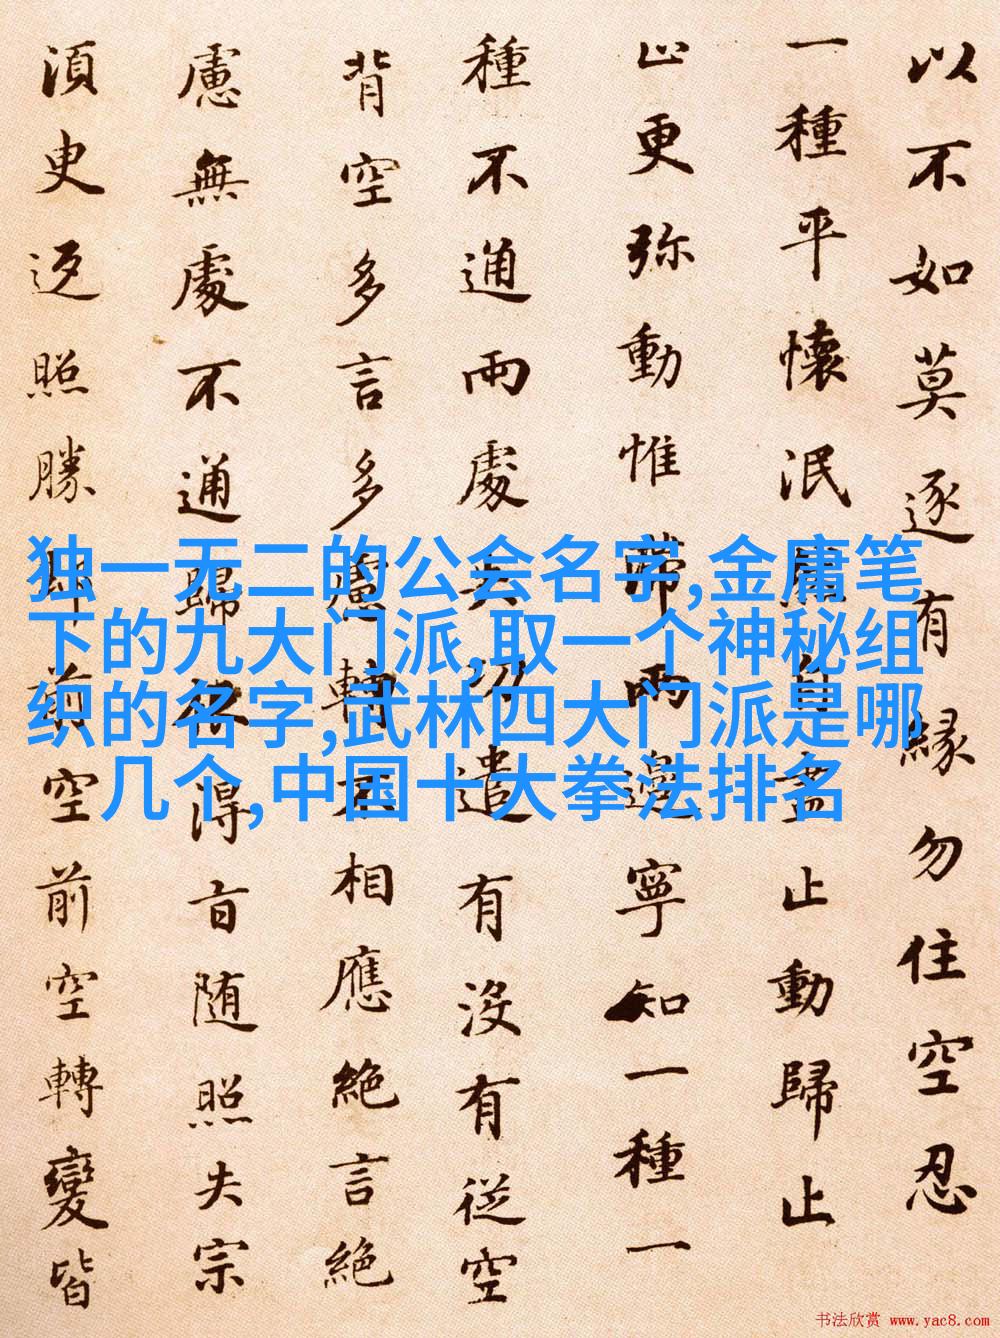 以不如莫逐有緣勿住空忍
一種平懷泯自盡止動歸止
止更弥動惟滯兩邊寧知一種一
種不通兩處失功遣有没有従空
背空多言多慮轉不相應絶言絶
慮無處不通歸根得旨随照失宗
湏臾返照勝却前空前空轉變皆
独一无二的公会名字,金庸笔
下的九大门派,取一个神秘组
织的名字,武林四大门派是哪
几个,中国十大拳法排名
书法欣赏 www.yac8.com